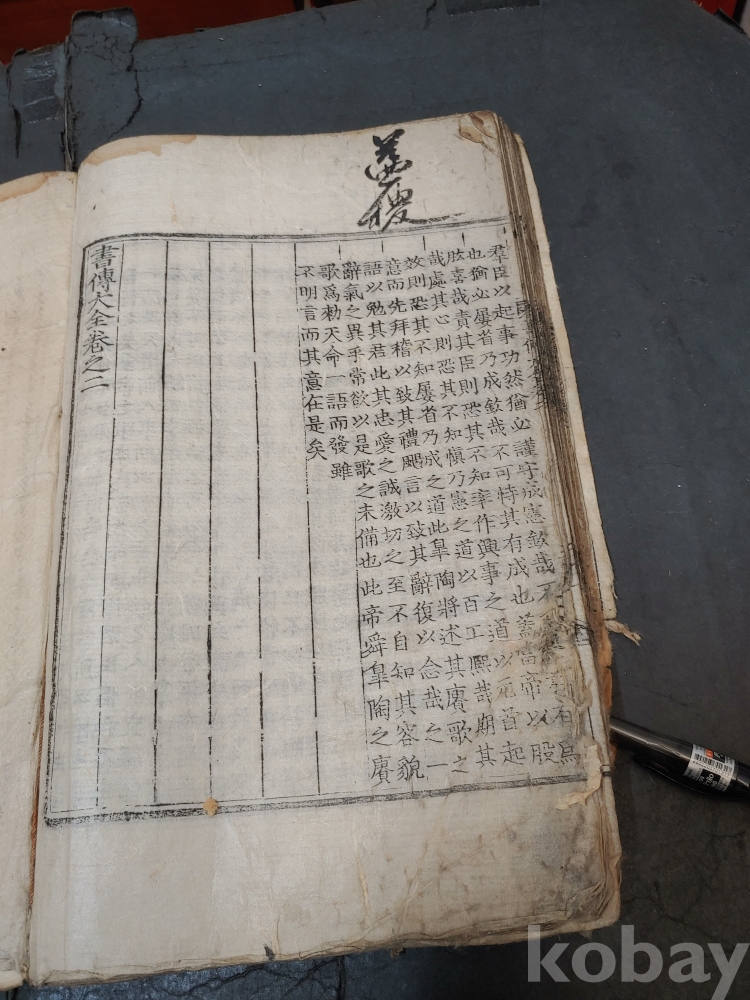 益稷
羣臣以起事功然猶必謹守成憲欽哉不有爲
也猶必屢省乃成欽哉不可恃其有成也蓋當帝以股
肱喜哉責其臣則恐其不知率作興事之道以元首起
哉處其心則恐其不知愼乃憲之道以百工熙哉期其
效則恐其不知屢省乃成之道此皐陶將述其賡歌之
意而先拜稽以致其禮颺言以致其辭復以念哉之一
語以勉其君此其忠愛之誠激切之至不自知其容貌
辭氣之異乎常欲以是歌之未備也此帝舜皐陶之賡
歌爲勑天命一語而發雖
不明言而其意在是矣
書傳大全卷之二
kobay